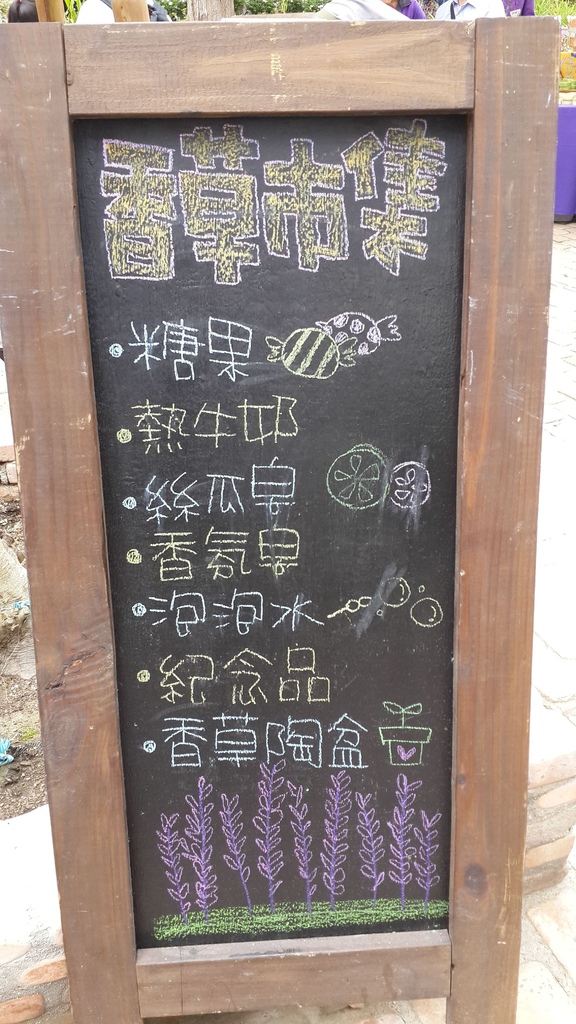 香草市集
糖果
熱牛奶
絲瓜皂
香氛皂
泡泡水
紀念品
香草陶盆